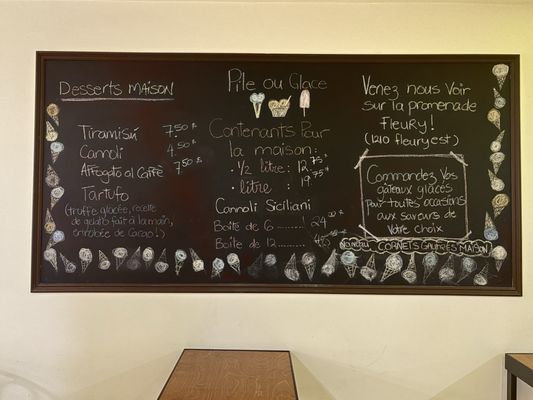 Desserts Maison
Tiramisú 7.50$
Cannoli 4.50$
Affogato al Caffè 7.50$
Tartufo
(truffe glacée, recette
de gelato fait à la main,
enrobée de cacao!)
Pile ou Glace
Contenants Pour
la maison:
• ½ litre: 12.75$
• litre: 19.75$
Cannoli Siciliani
Boîte de 6 ........ 24
Boîte de 12 ........
Venez nous voir
sur la promenade
Fleury!
(1210 fleury est)
Commandez vos
gâteaux glacés
pour toutes occasions
aux saveurs de
votre choix
Nouveau CORNETS GAUFRÉS MAISON